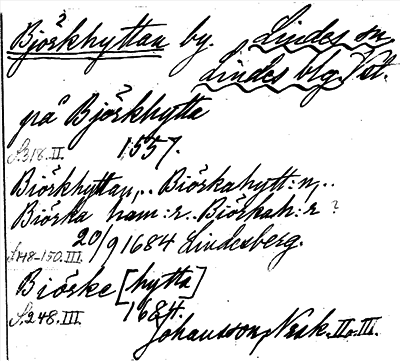 Björkhyttan by. Lindes sn
Lindes blg. Vst.
på Björkhytta
S.318.II. 1557.
Biörkhyttan,.. Biörkahytt:n,..
Biörka ham:r.. Biörkah:r ?
S.148-150.III. 20/9 1684 Lindesberg.
Biörke [hytta]
S.248.III. 1684.
Johansson, Nsk. II o. III.